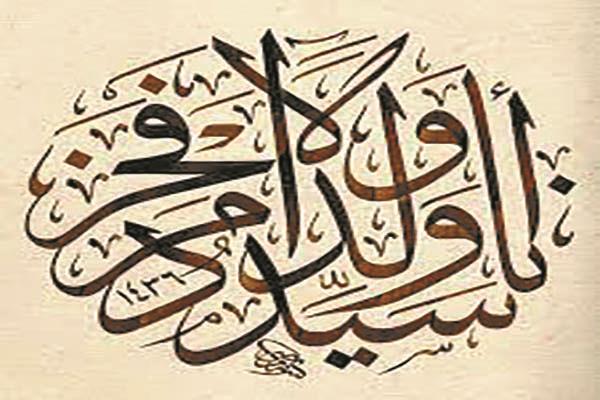 أنا سيّد ولد آدم ولا فخر
١٤٣٦